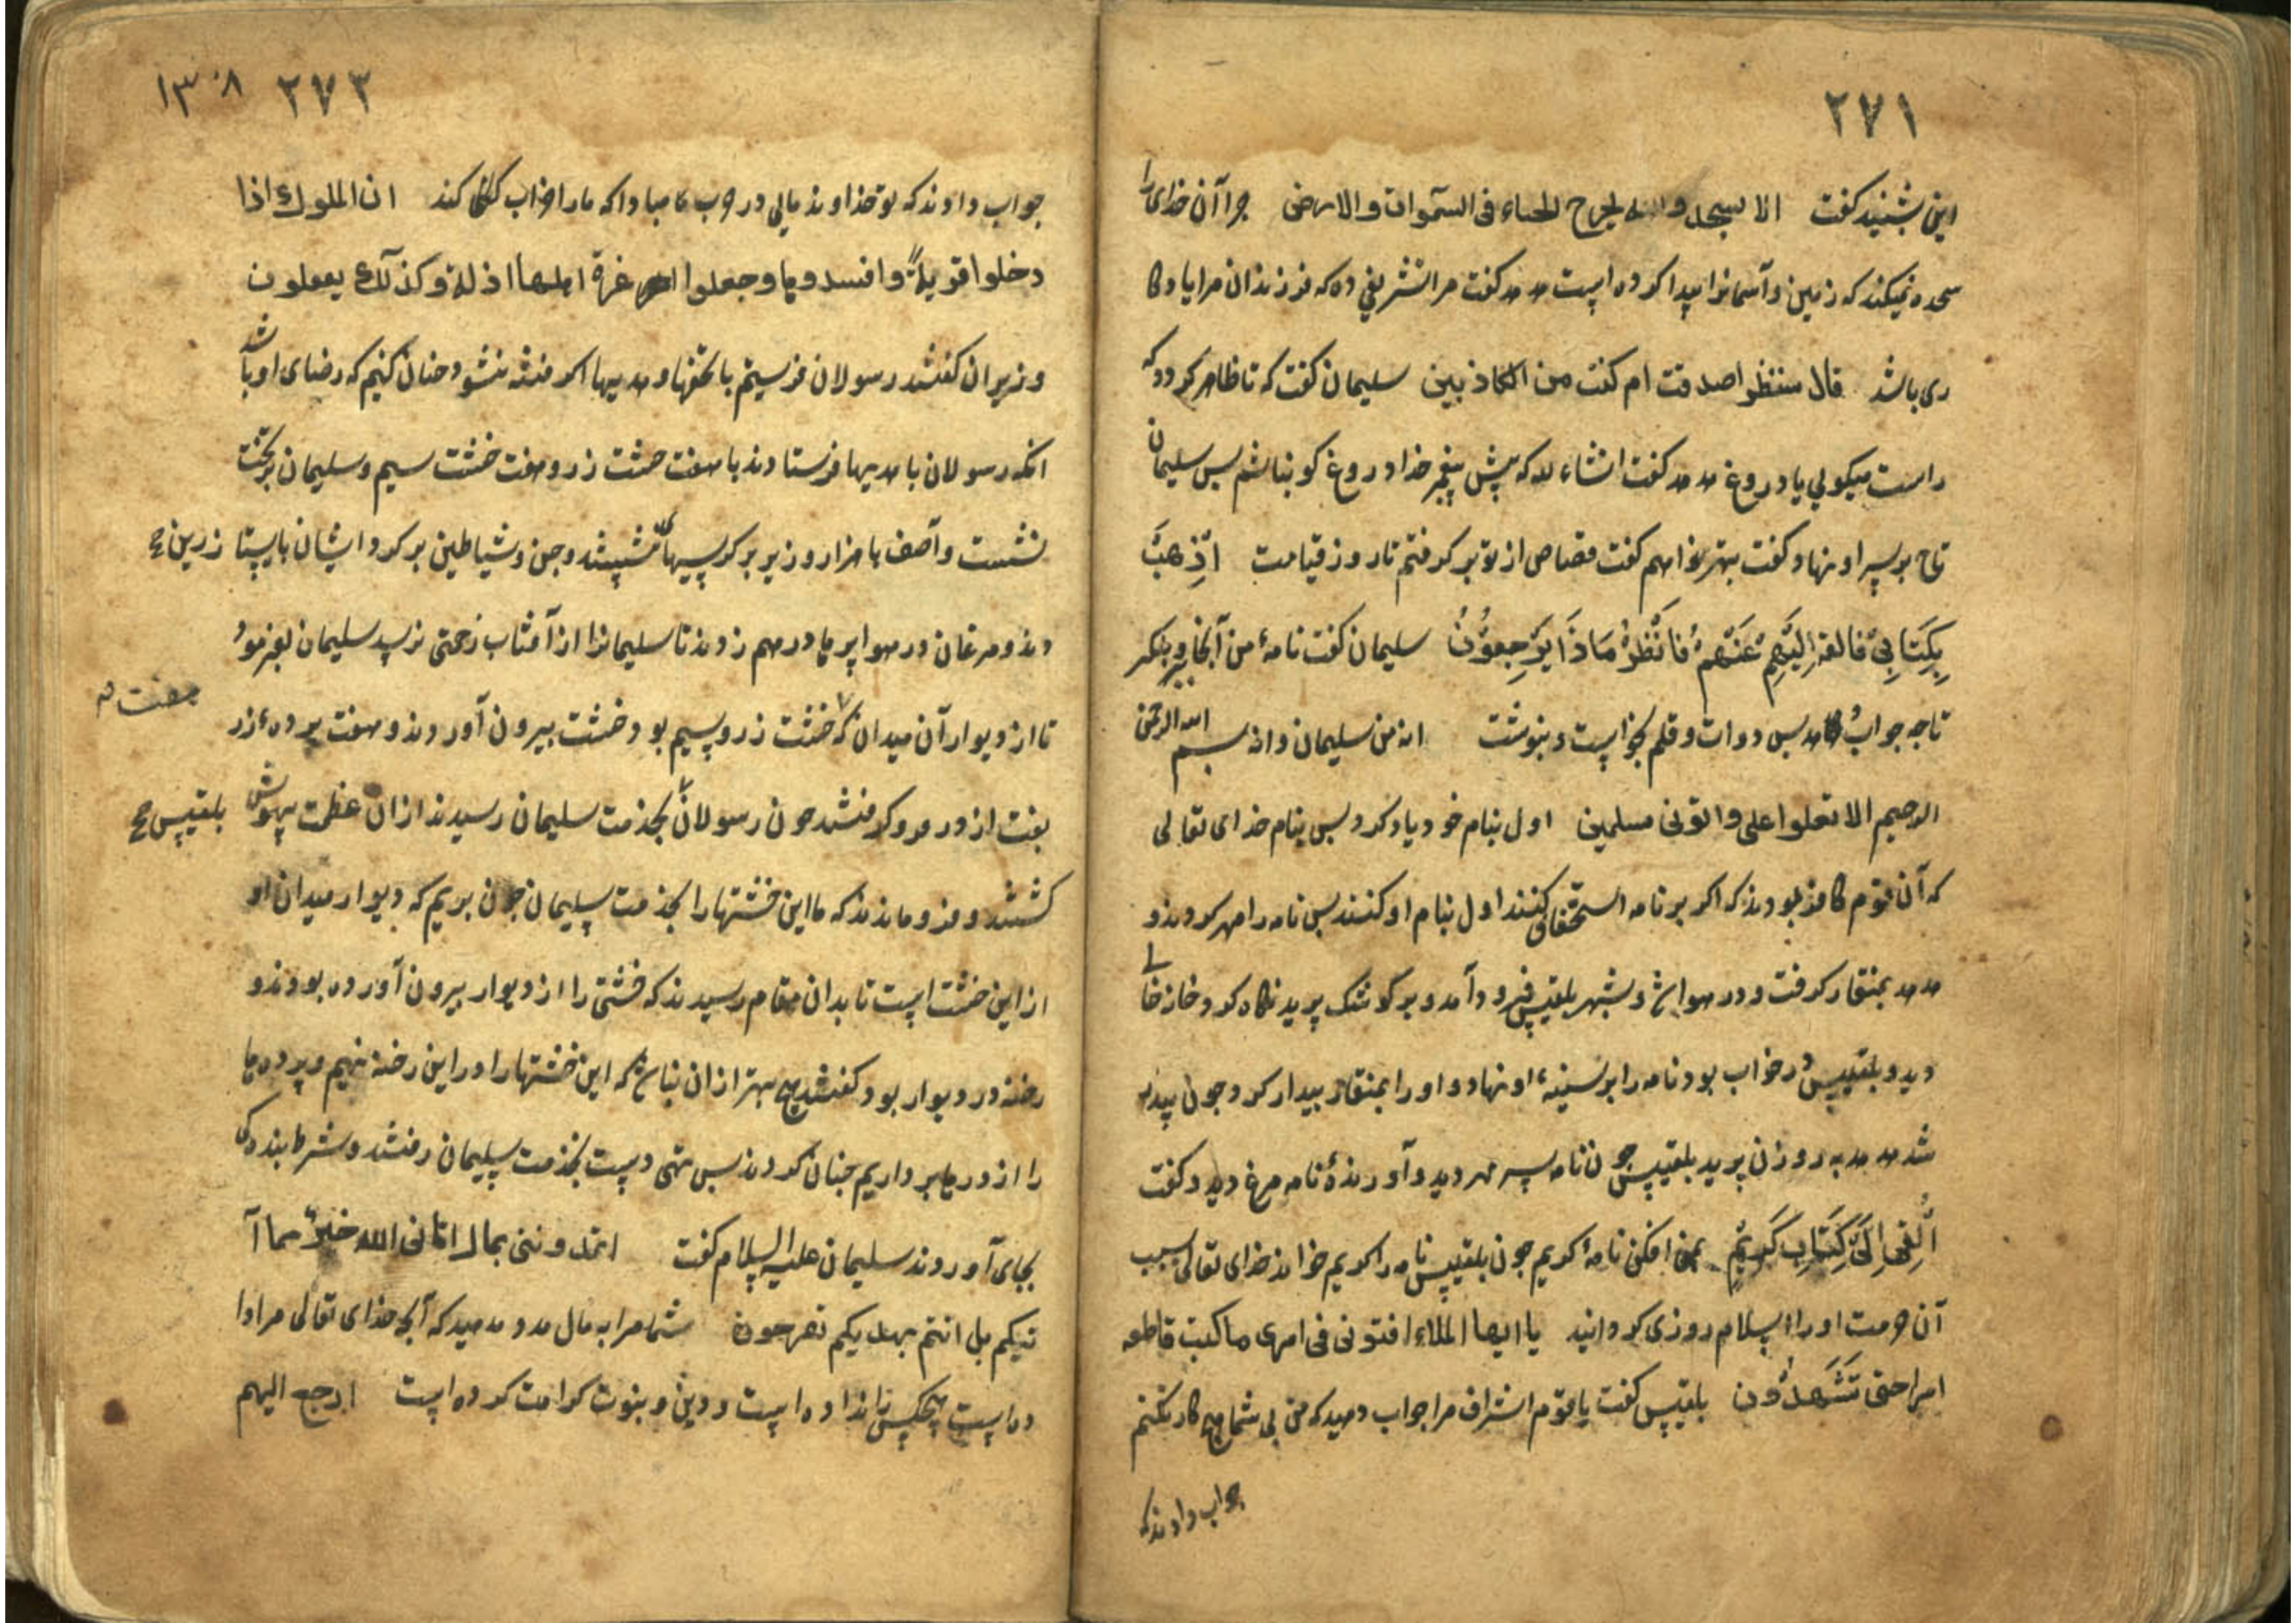 ۲۷۱
این بشنید کفت الا یسجدو الله یخرج الخباء فی السموات والارض جرا آن خدای را
سجده نمیکند که زمین و آسمانرا پیدا کرده است هدهد کفت مرا تشریفی ده که فرزندان مرا یادکا
ری باشد قال سننظر اصدقت ام کنت من الکاذبین سلیمان کفت که تا ظاهر کردد که
راست میکویی یا دروغ هدهد کفت انشاء لله که پیش پیغمبر خدا دروغ کو نباشم بس سلیمان
تاج بر سر او نهاد و کفت بهتر خواهم کفت قصاص از تو بر کرفتم تا روز قیامت اِذْهَبْ
بِکِتَابِیْ فالقه اِلَیْهِمْ عَنْهُمْ فَانْظُرْ مَاذَا یَرْجِعُوْنَ سلیمان کفت نامهٔ من آنجا ببر و بنکر
تا جه جواب دهد بس دوات و قلم بخواست و بنوشت انه من سلیمان وانه بسم الله الرحمن
الرحیم الا تعلوا علی واتونی مسلمین اول بنام خود یاد کرد بس بنام خدای تعالی
که آن قوم کافر بودند که اکر بر نامه استخفاف کنند اول بنام او کنند بس نامه را مهر کردند و
هدهد بمنقار کرفت و در هوا شد و بشهر بلقیس فرود آمد و بر کوشک پرید نکاه کرد و خانه خالی
دید و بلقیس در خواب بود نامه را بر سینهء او نهاد و او را بمنقار بیدار کرد و جون بیدار
شد هدهد به روزن پرید بلقیس جون نامه سر مهر دید و آورندهٔ نامه مرغ دید و کفت
اُلْقِیَ اِلَیَّ کِتَابٌ کَرِیْمٌ بمن افکن نامهٔ کریم جون بلقیس نامه را کریم خواند خدای تعالی بسبب
آن حرمت او را اسلام روزی کردانید یا ایها الملاء افتونی فی امری ما کنت قاطعه
امرا حتی تَشْهَدُوْن بلقیس کفت یا قوم اشراف مرا جواب دهید که من بی شما هیچ کار نکنم
جواب دادند که
۲۷۲ ۱۳۰۸
جواب دادند که تو خداوند مالی در حرب ما مبادا که ما را خراب کند ان الملوك اذا
دخلوا قریةً وافسدوها وجعلوا اعزة اهلها اذلة وکذلك یفعلون
وزیران کفتند رسولان فرستیم با تحفها و هدیها اکر فتنه ننشود جنان کنیم که رضای او باشد
آنکه رسولان با هدیها فرستادند با هفت خشت زر و هفت خشت سیم و سلیمان بر تخت
نشست و آصف با هزار وزیر بر کرسیها نشستند و جن و شیاطین بر کرد ایشان بایستا زرین
دند و مرغان در هوا پرها در هم زدند تا سلیمانرا از آفتاب زحمتی نرسد سلیمان بفرمود
تا از دیوار آن میدان که خشت زر و سیم بود خشت بیرون آوردند و هفت پردهء زر هفت
بفت از در فرو کرفتند جون رسولان بخدمت سلیمان رسیدند از آن عظمت بیهوش بلقیس
کشتند و فرو ماندند که ما این خشتها را بخدمت سلیمان جون بریم که دیوار میدان او
از این خشت است تا بدان مقام رسیدند که خشتی را از دیوار بیرون آورده بودند و
رخنه در دیوار بود کفتند هیچ بهتر از ان نباشد که این خشتها را در این رخنه نهیم و پردها
را از درها برداریم جنان کردند بس تهی دست بخدمت سلیمان رفتند و شرط بندکی
بجای آوردند سلیمان علیه السلام کفت اتمدوننی بمال اتانی الله خیر مما آ
تیکم بل انتم بهدیکم تفرحون شما مرا به مال مدد مدهید که آنجه خدای تعالی مرا دا
ده است هیچکس را نداده است و دین و نبوت کرامت کرده است ارجع الیهم